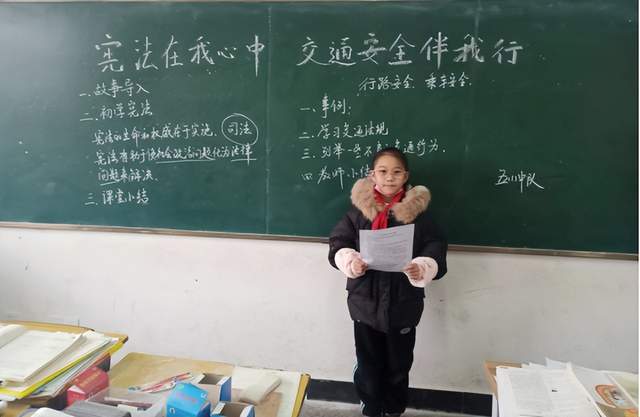 宪法在我心中
一.故事导入
二.初学宪法
宪法的生命和权威在于实施. 司法
宪法有助于使社会政治问题化为法律
问题来解决.
三.课堂小结
交通安全伴我行
行路安全 乘车安全.
一.事例:
二.学习交通法规
三.列举一些不 交通行为.
四 教师小结
五 中队